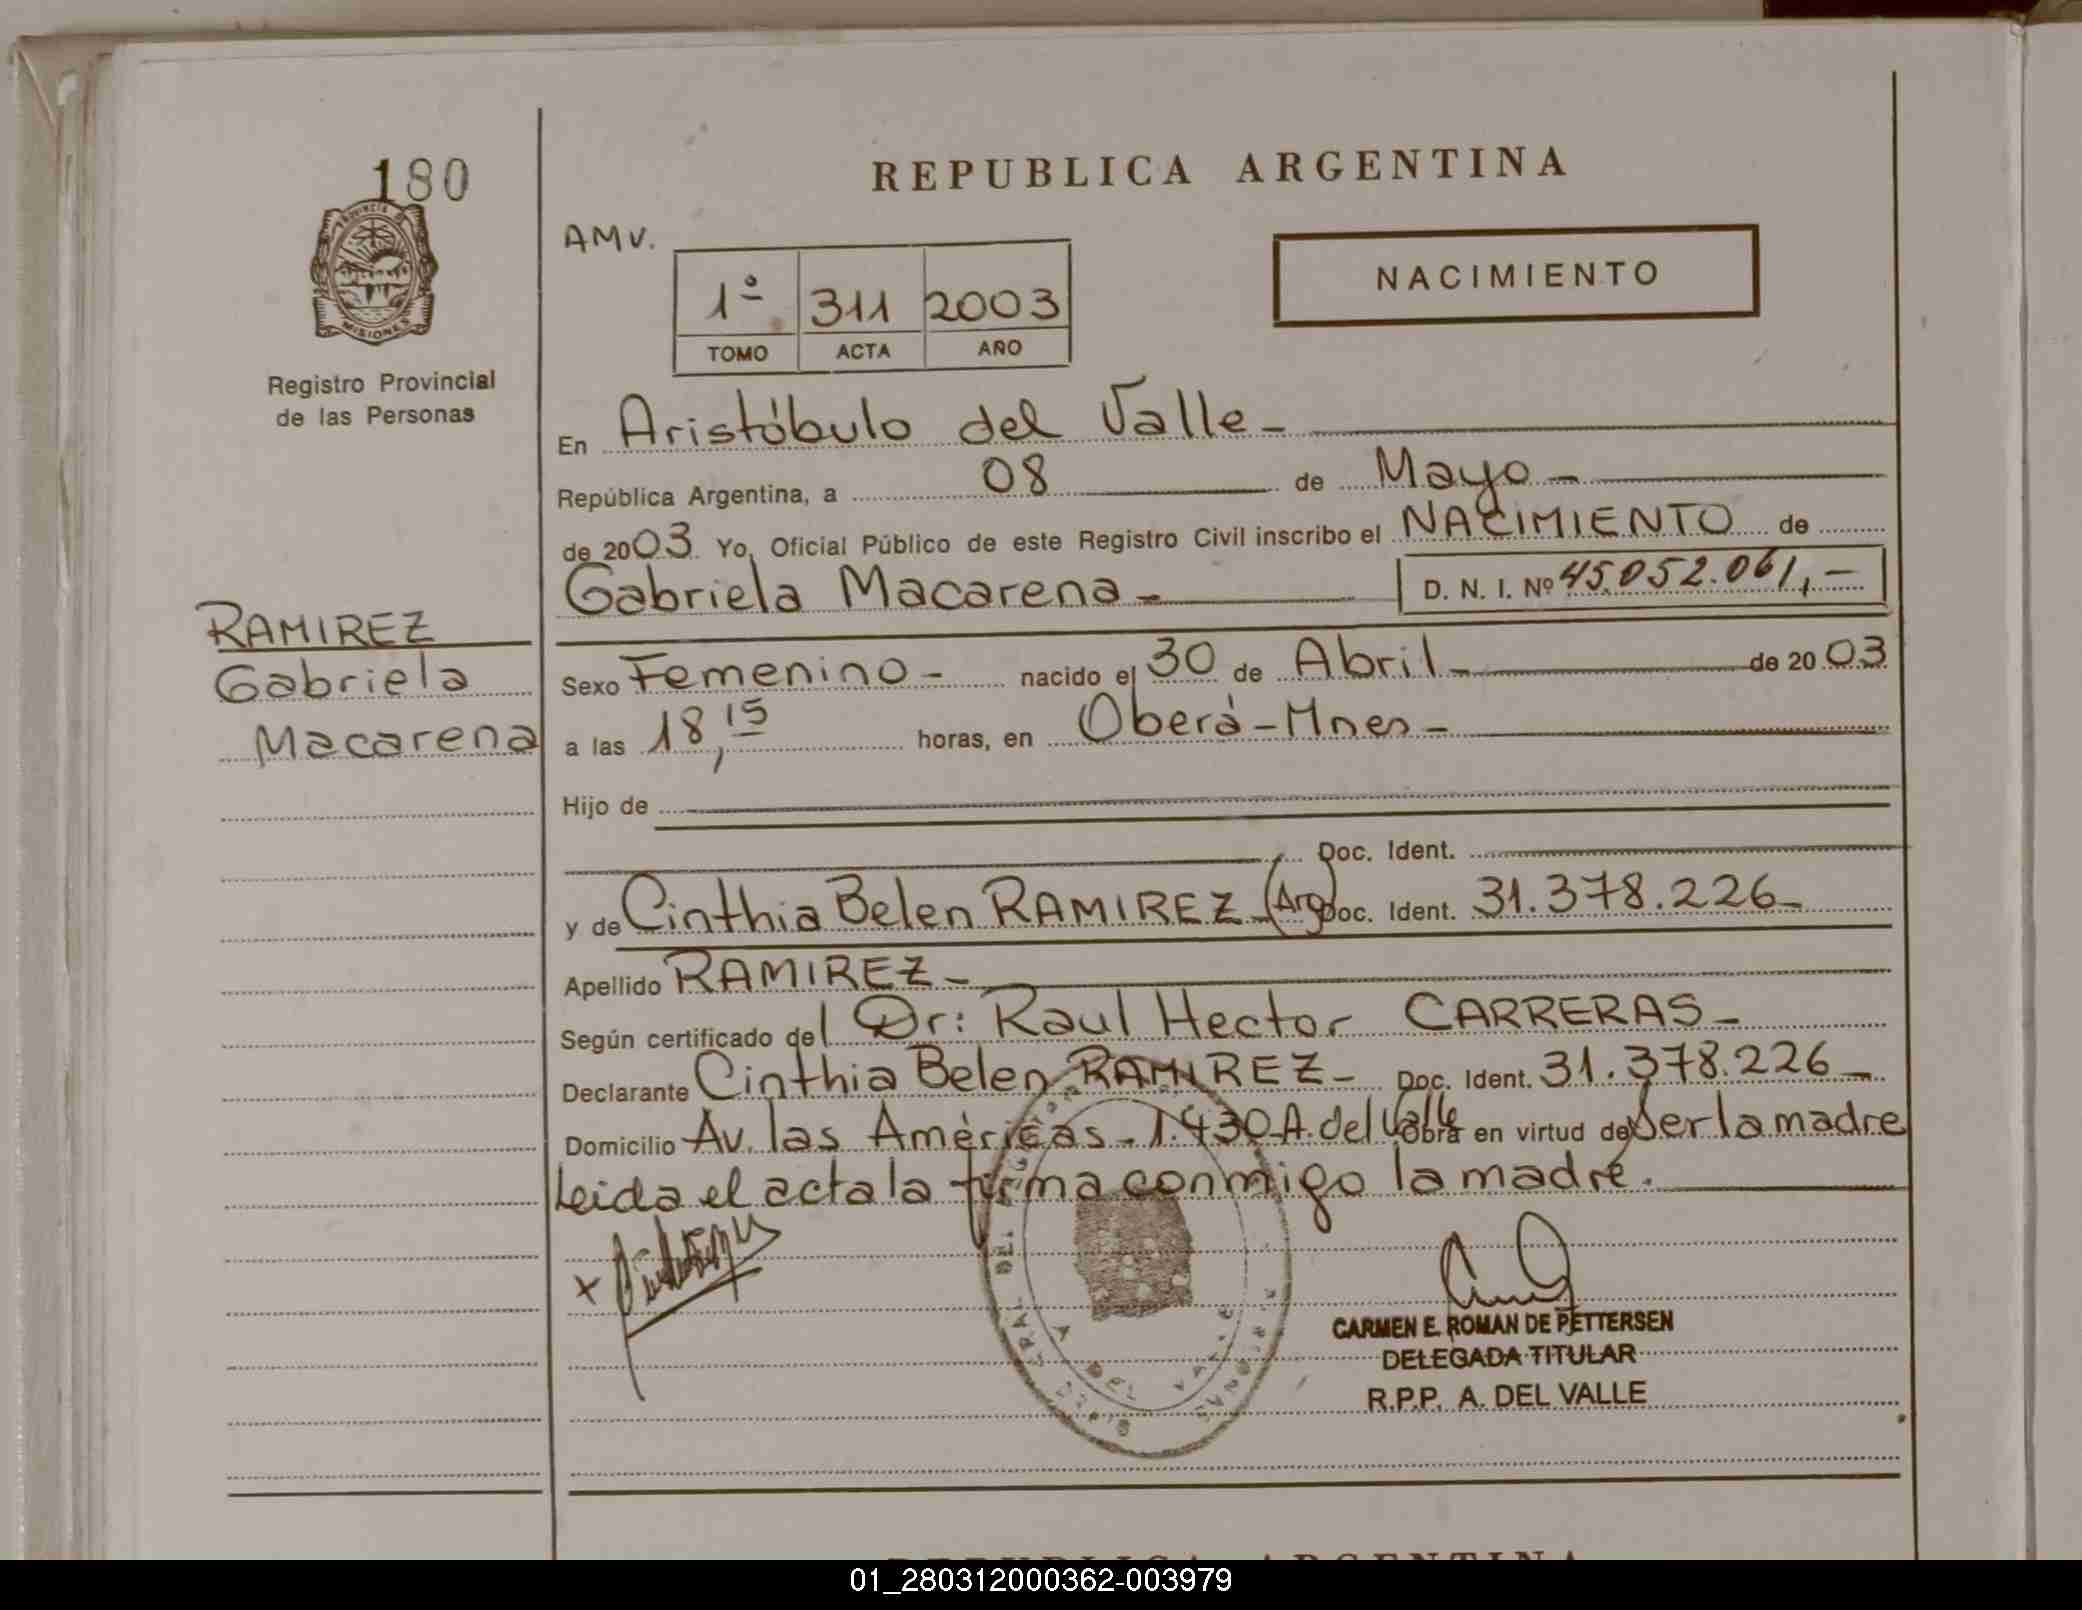 180
REPUBLICA ARGENTINA
AMV.
PROVINCIA DE
MISIONES
1º 311 2003
TOMO ACTA AÑO
NACIMIENTO
Registro Provincial
de las Personas
En Aristóbulo del Valle -
República Argentina, a 08 de Mayo -
de 2003. Yo, Oficial Público de este Registro Civil inscribo el NACIMIENTO de
Gabriela Macarena - D. N. I. Nº 45.052.061,-
RAMIREZ
Gabriela
Macarena
Sexo Femenino - nacido el 30 de Abril - de 2003
a las 18,15 horas, en Oberá - Mnes -
Hijo de
Doc. Ident.
y de Cinthia Belen RAMIREZ (Arg) Doc. Ident. 31.378.226 -
Apellido RAMIREZ -
Según certificado del Dr: Raul Hector CARRERAS -
Declarante Cinthia Belen RAMIREZ - Doc. Ident. 31.378.226 -
Domicilio Av. las Américas - 1.430 A. del Valle Obra en virtud de Ser la madre
Leida el acta la firma conmigo la madre.
x
CARMEN E. ROMAN DE PETTERSEN
DELEGADA TITULAR
R.P.P. A. DEL VALLE
A DEL VALLE
REPUBLICA ARGENTINA
01_280312000362-003979